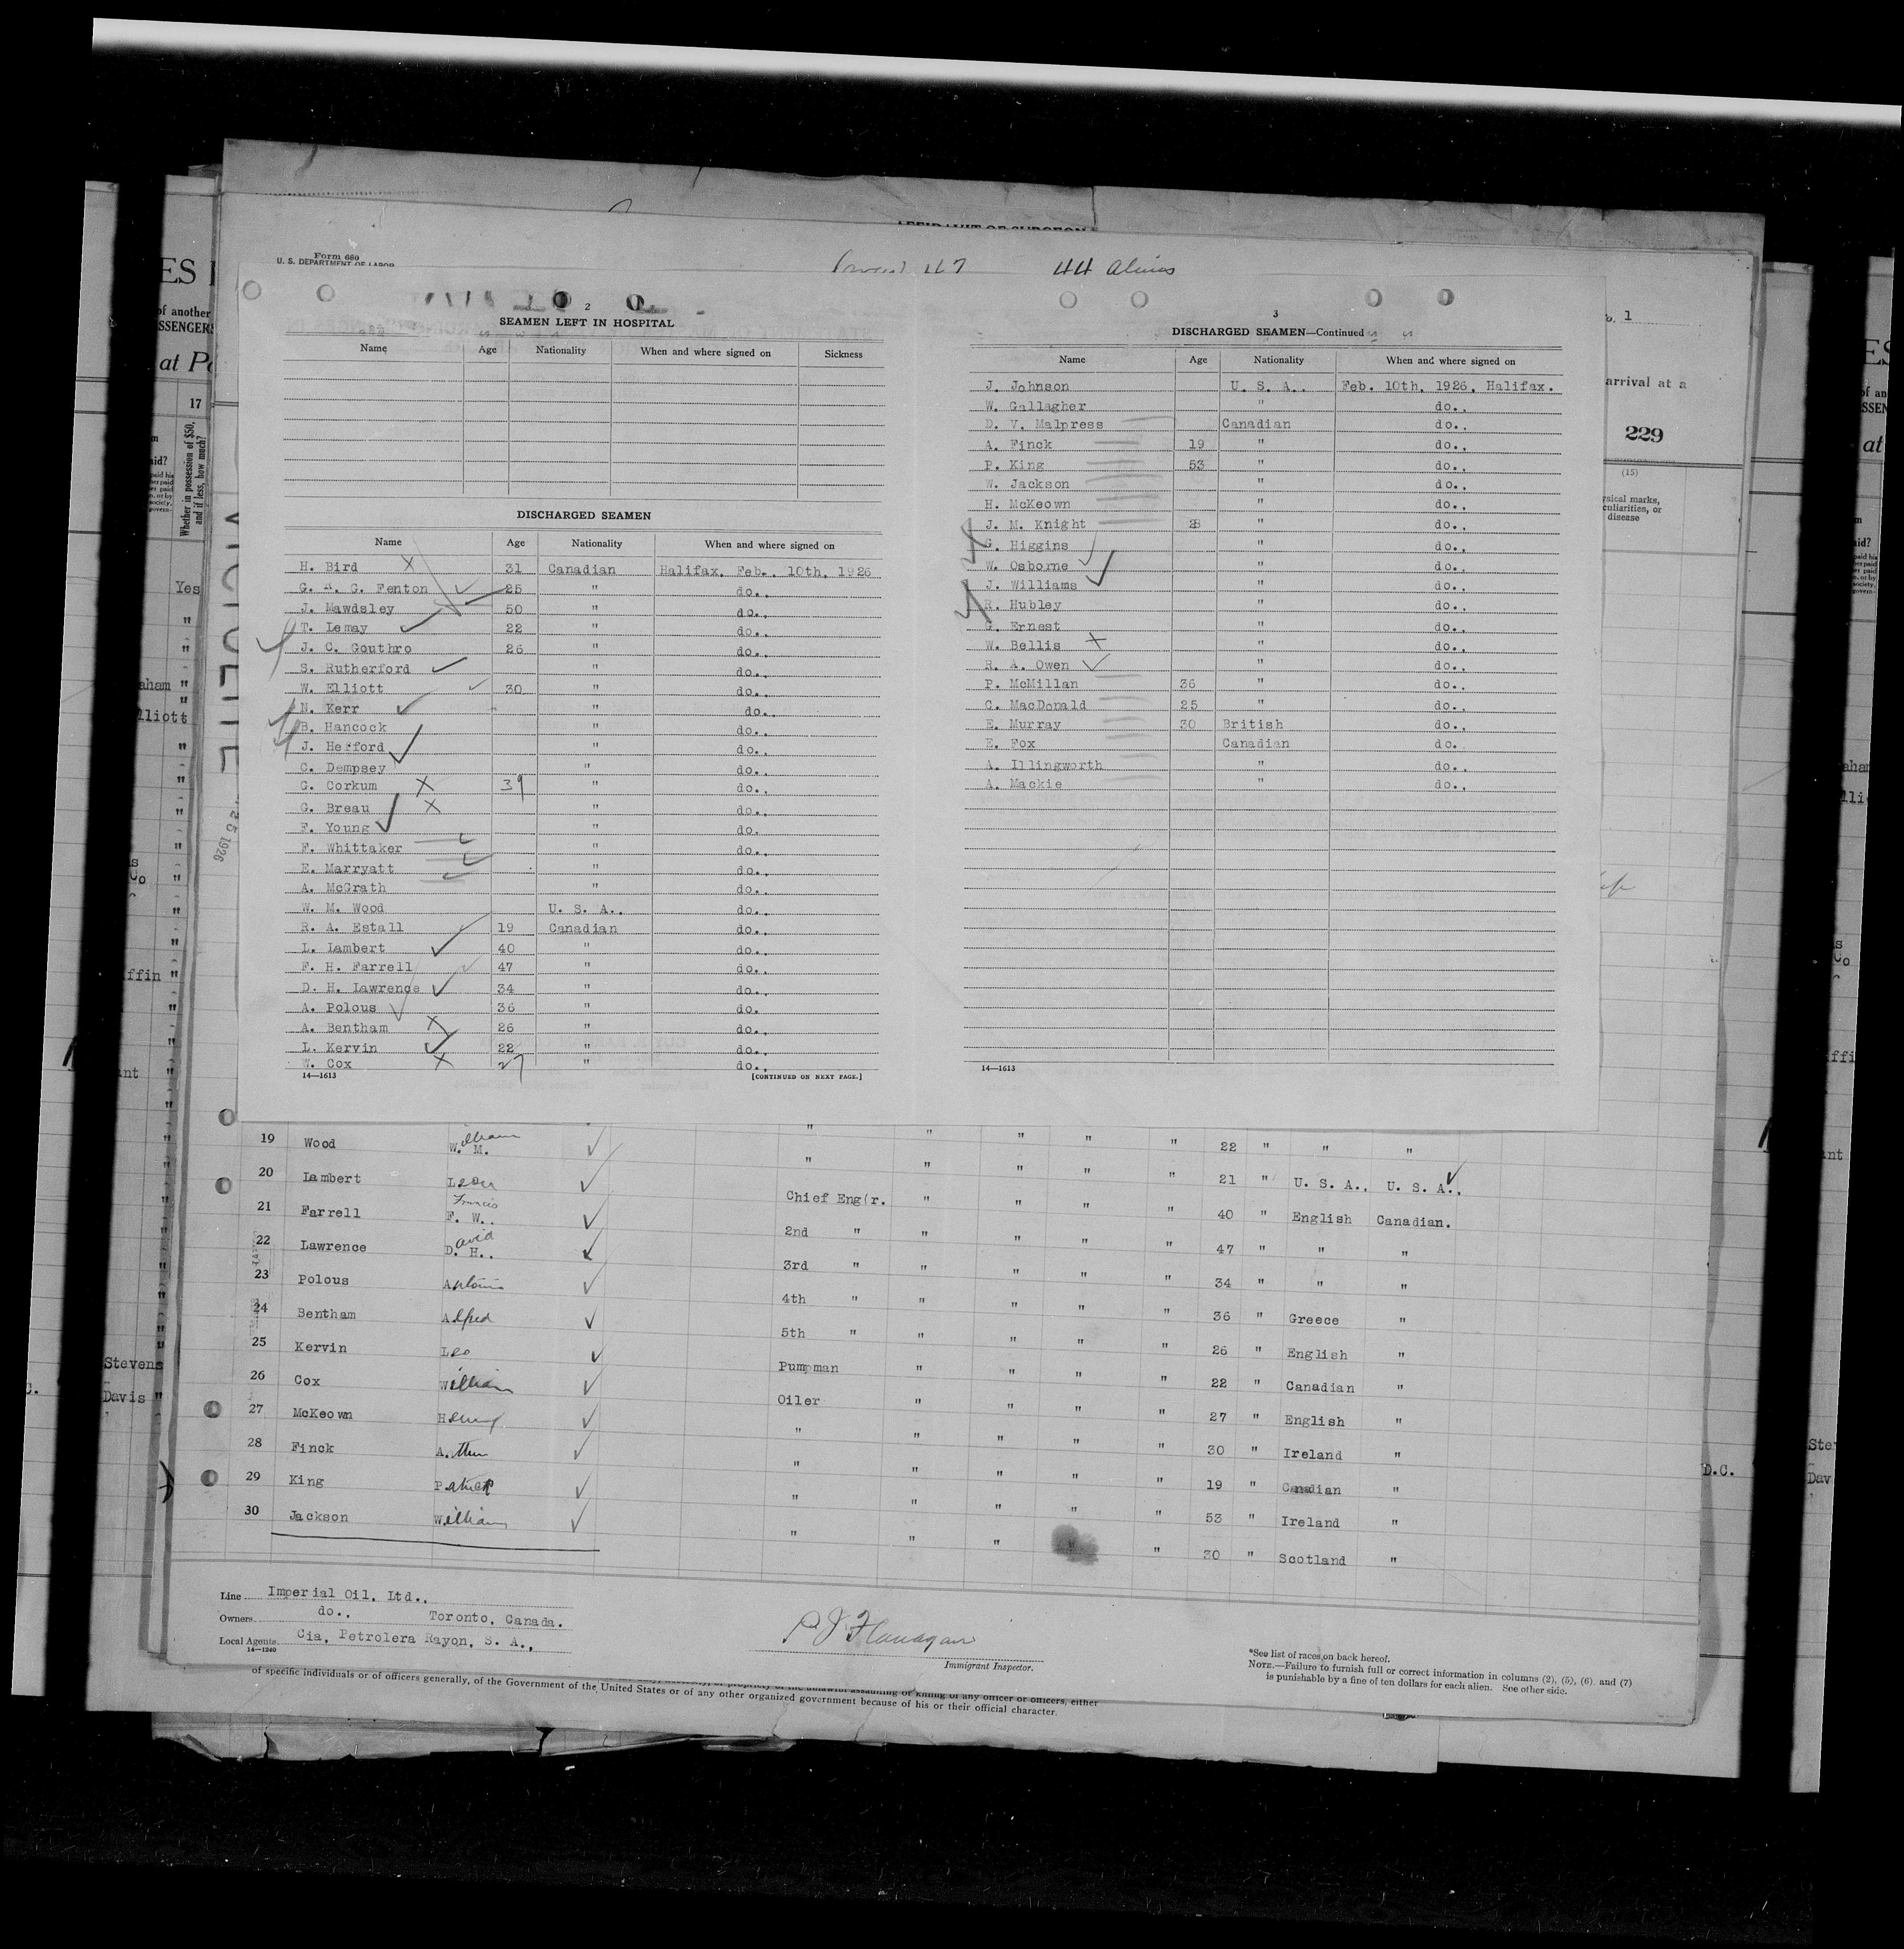 AFFIDAVIT OF SURGEON
Form 680
U. S. DEPARTMENT OF LABOR
44 aliens
2
SEAMEN LEFT IN HOSPITAL
Name Age Nationality When and where signed on Sickness
DISCHARGED SEAMEN
Name Age Nationality When and where signed on
H. Bird 31 Canadian Halifax, Feb., 10th, 1926
G. A. G. Fenton 25 " do.,
J. Mawdsley 50 " do.,
T. Lemay 22 " do.,
J. C. Gouthro 26 " do.,
S. Rutherford " do.,
W. Elliott 30 " do.,
N. Kerr " do.,
B. Hancock " do.,
J. Hefford " do.,
C. Dempsey " do.,
G. Corkum 39 " do.,
G. Breau " do.,
F. Young " do.
F. Whittaker " do.,
E. Marryatt " do.,
A. McGrath " do.,
W. M. Wood U. S. A., do.,
R. A. Estall 19 Canadian do.,
L. Lambert 40 " do.,
F. H. Farrell 47 " do.,
D. H. Lawrence 34 " do.,
A. Polous 36 " do.
A. Bentham 26 " do.,
L. Kervin 22 " do.,
W. Cox 27 " do.,
14—1613 [CONTINUED ON NEXT PAGE.]
3
DISCHARGED SEAMEN—Continued
Name Age Nationality When and where signed on
J. Johnson U. S. A.. Feb. 10th, 1926, Halifax.
W. Gallagher " do.,
D. V. Malpress Canadian do.,
A. Finck 19 " do.,
P. King 53 " do.,
W. Jackson " do.,
H. McKeown " do.,
J. M. Knight 28 " do.,
G. Higgins " do.,
W. Osborne " do.,
J. Williams " do.,
R. Hubley " do.,
G. Ernest " do.,
W. Bellis " do.,
R. A. Owen " do.,
P. McMillan 36 " do.,
C. MacDonald 25 " do.,
E. Murray 30 British do.,
E. Fox Canadian do.
A. Illingworth " do.,
A. Mackie " do.,
14—1613
1
arrival at a
229
(15)
disease
19 Wood William W. M. " " " " " 22 " " "
20 Lambert Leon " " " " " 21 " U. S. A., U. S. A.,
21 Farrell Francis F. W.. Chief Eng(r. " " " " 40 " English Canadian.
22 Lawrence David D. H.. 2nd " " " " " 47 " " "
23 Polous Antonio 3rd " " " " " 34 " " "
24 Bentham Alfred 4th " " " " " 36 " Greece "
25 Kervin Leo 5th " " " " " 26 " English "
26 Cox William Pumpman " " " " 22 " Canadian "
27 McKeown Henry Oiler " " " " 27 " English "
28 Finck Arthur " " " " " 30 " Ireland "
29 King Patrick " " " " " 19 " Canadian "
30 Jackson William " " " " " 53 " Ireland "
" " " " " 30 " Scotland "
Line Imperial Oil, Ltd.,
Owners do., Toronto, Canada.
Local Agents Cia, Petrolera Rayon, S. A.,
14—1240
P J Flanagan
Immigrant Inspector.
*See list of races on back hereof.
NOTE.—Failure to furnish full or correct information in columns (2), (5), (6), and (7)
is punishable by a fine of ten dollars for each alien. See other side.
of specific individuals or of officers generally, of the Government of the United States or of any other organized government because of his or their official character.
17
Whether in possession of $50,
and if less, how much?
Yes
Stevens
Davis "
D.C.